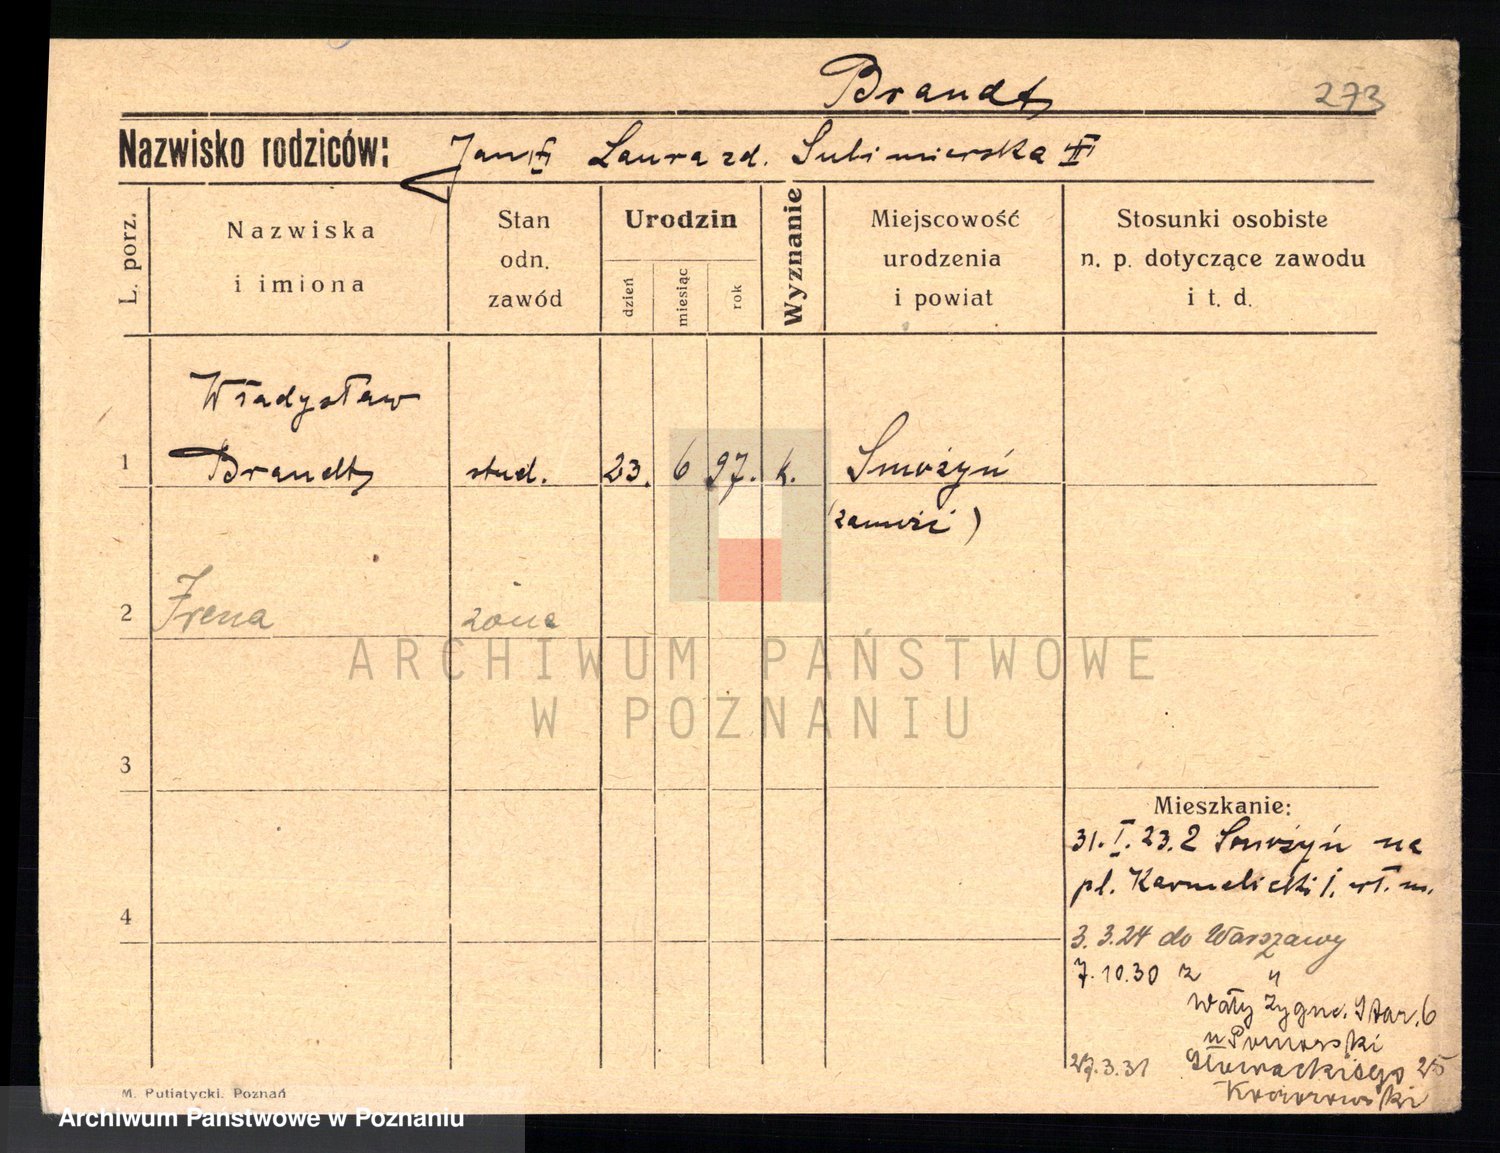 Brandt
273
Nazwisko rodziców: Jan Laura zd.
L. porz.
Nazwiska
i imiona
Stan
odn.
zawód
Urodzin
dzień
miesiąc
rok
Wyznanie
Miejscowość
urodzenia
i powiat
Stosunki osobiste
n. p. dotyczące zawodu
i t. d.
Władysław
1 Brandt stud. 23. 6 97. k. Smożyń
2 Irena żona
ARCHIWUM PAŃSTWOWE
W POZNANIU
3
Mieszkanie:
31. I. 23. z Smożyń na
pl. Karmelicki 1.
4
3. 3. 24 do Warszawy
7. 10. 30 z "
Wały Zygm. Star. 6
u Pomorski
27. 3. 31 Słowackiego 25
M. Putiatycki. Poznań
Archiwum Państwowe w Poznaniu